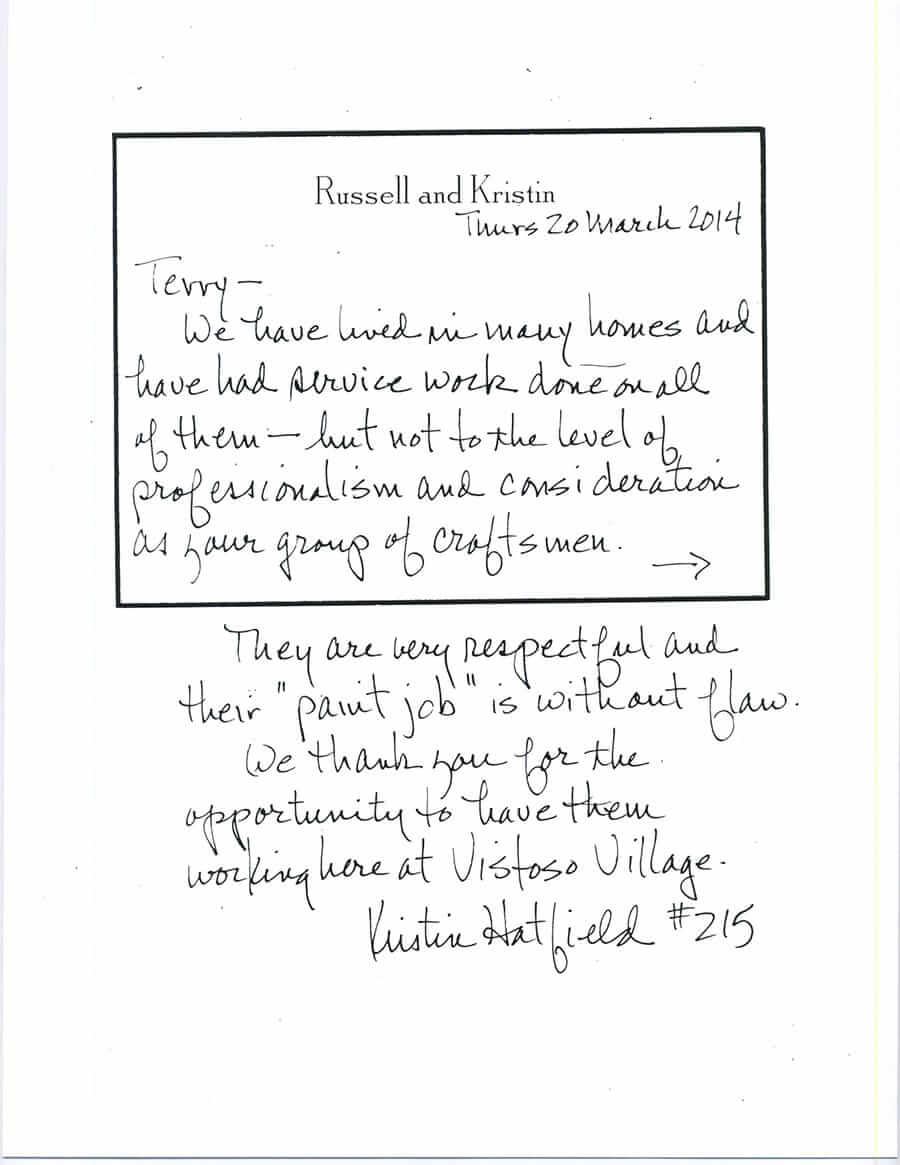 Russell and Kristin
Thurs 20 March 2014
Terry —
We have lived in many homes and
have had service work done on all
of them — but not to the level of
professionalism and consideration
as your group of craftsmen.
→
They are very respectful and
their "paint job" is without flaw.
We thank you for the
opportunity to have them
working here at Vistoso Village.
Kristin Hatfield #215